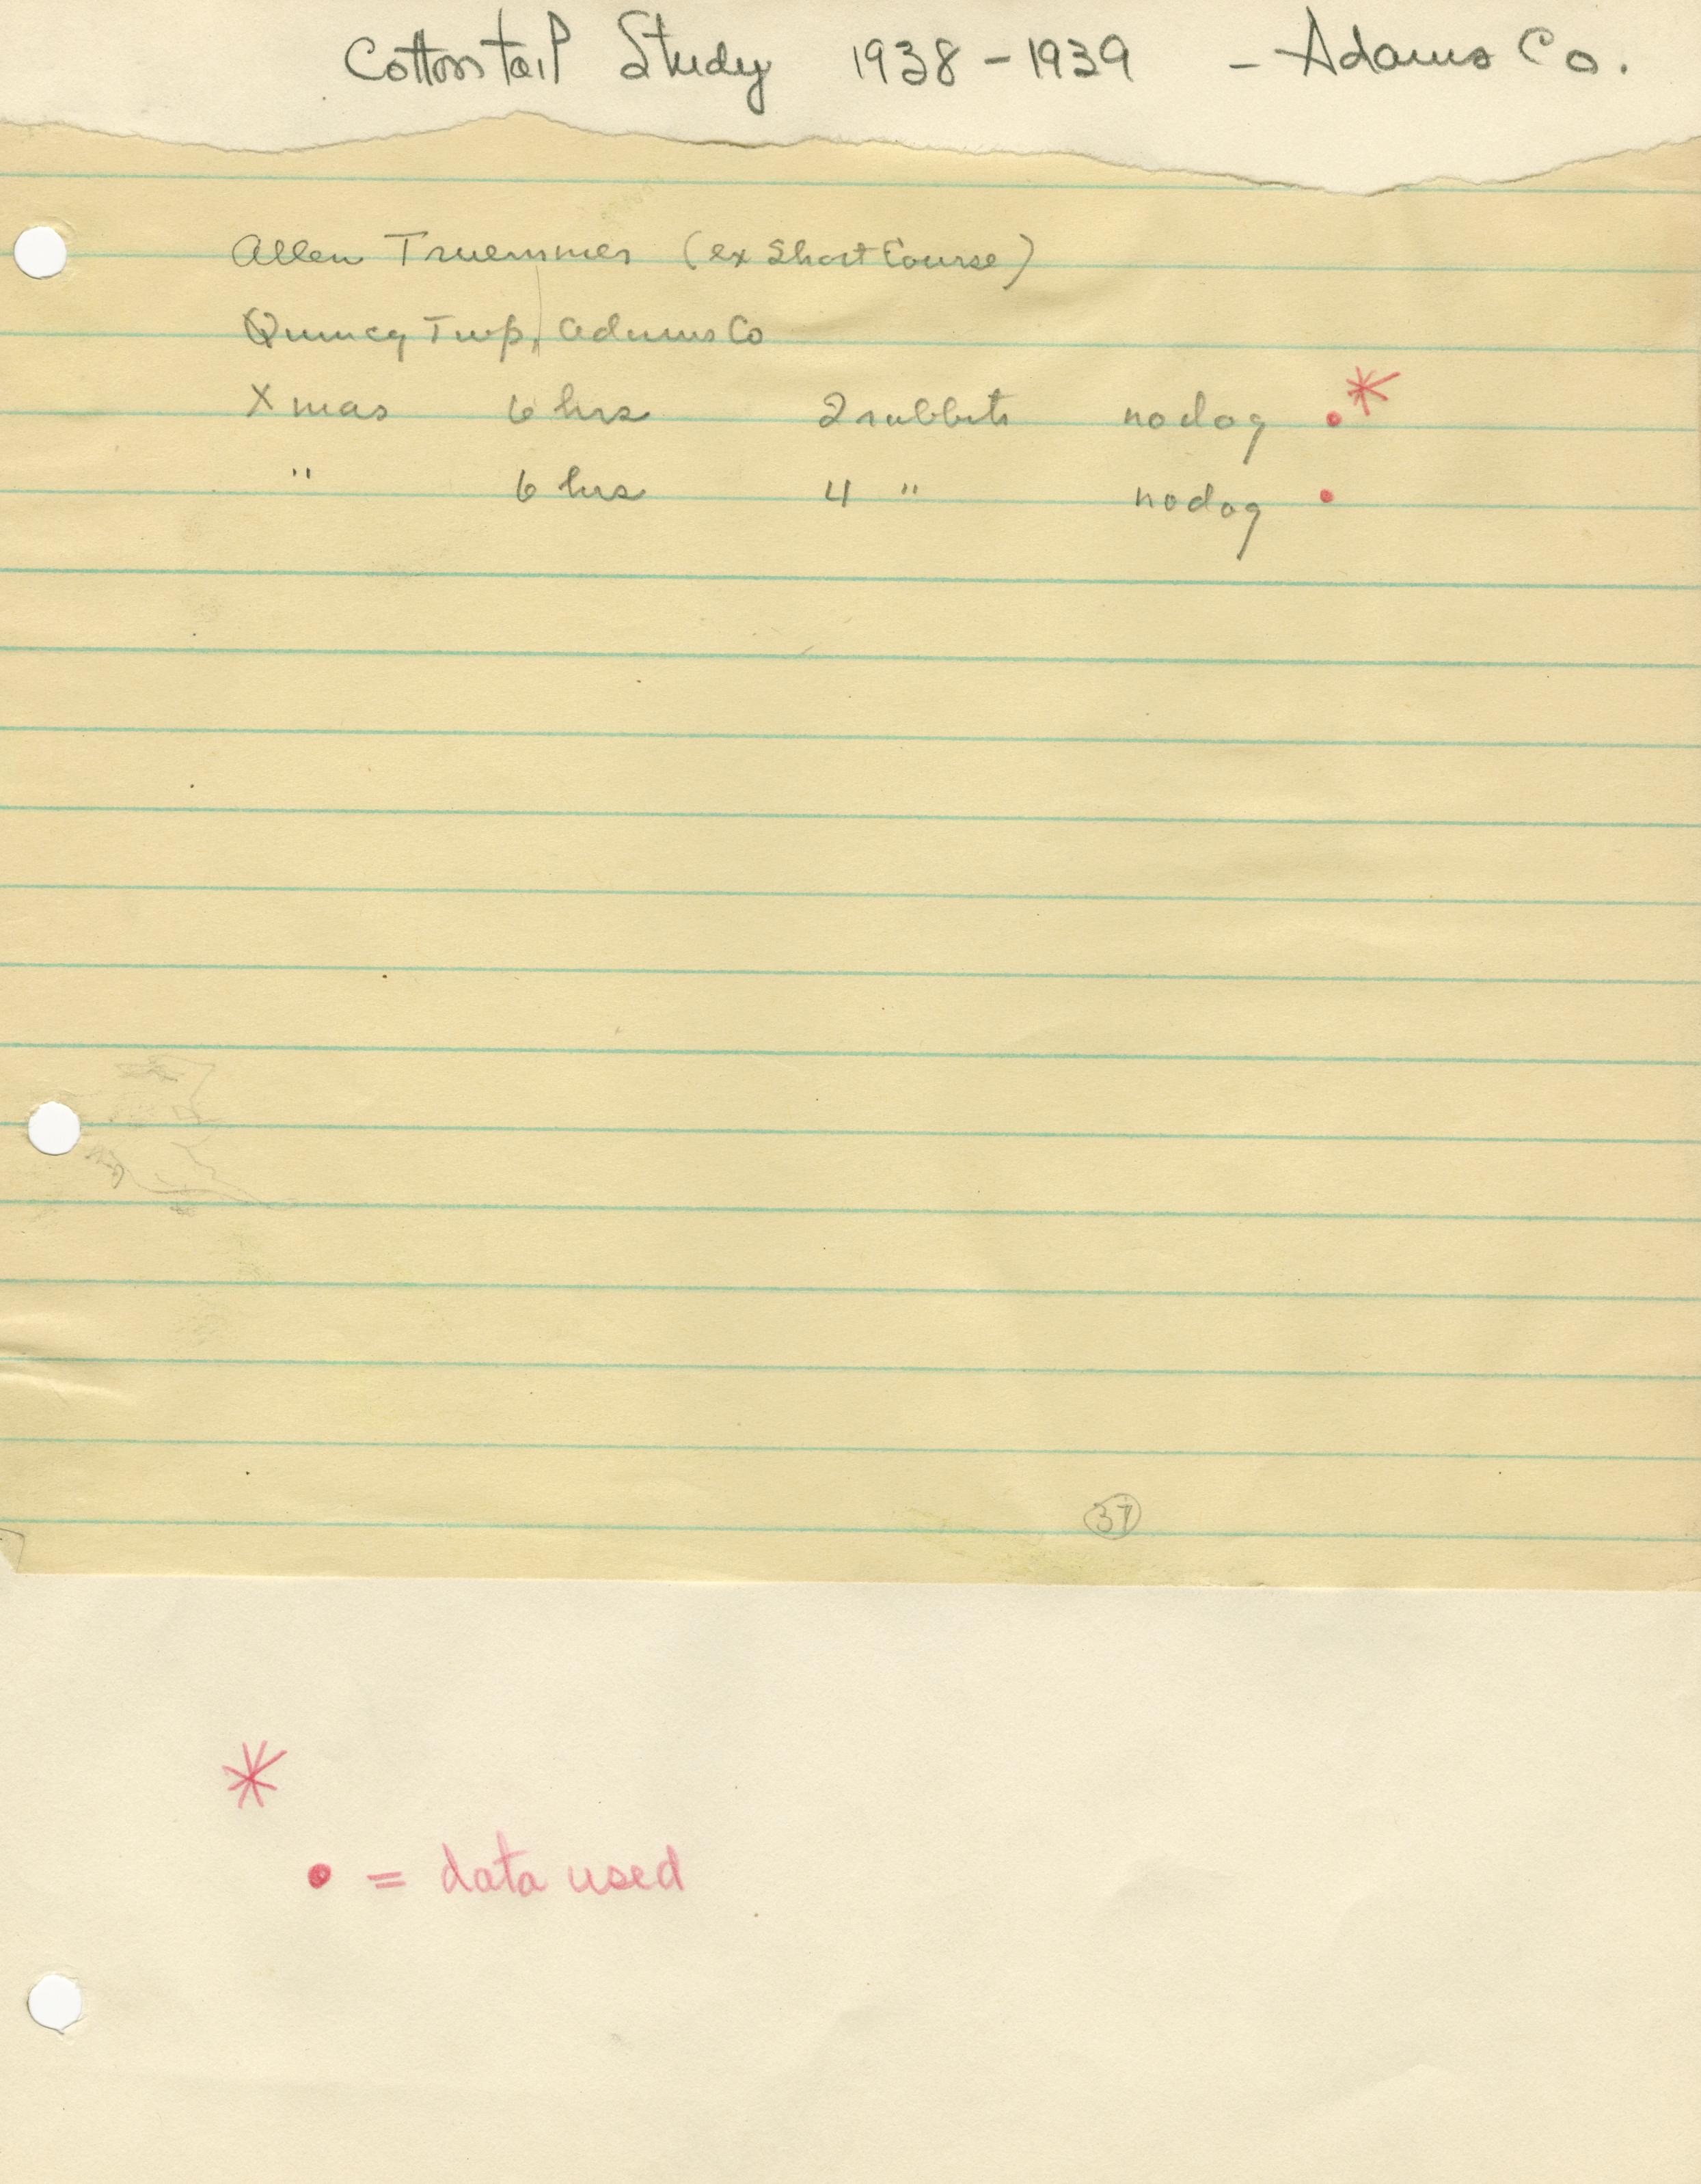 Cottontail Study 1938-1939 - Adams Co.
Allen Truemmer (ex Short Course)
Quincy Twp, Adams Co
Xmas 6 hrs 2 rabbits no dog •*
" 6 hrs 4 " no dog •
37
*
• = data used